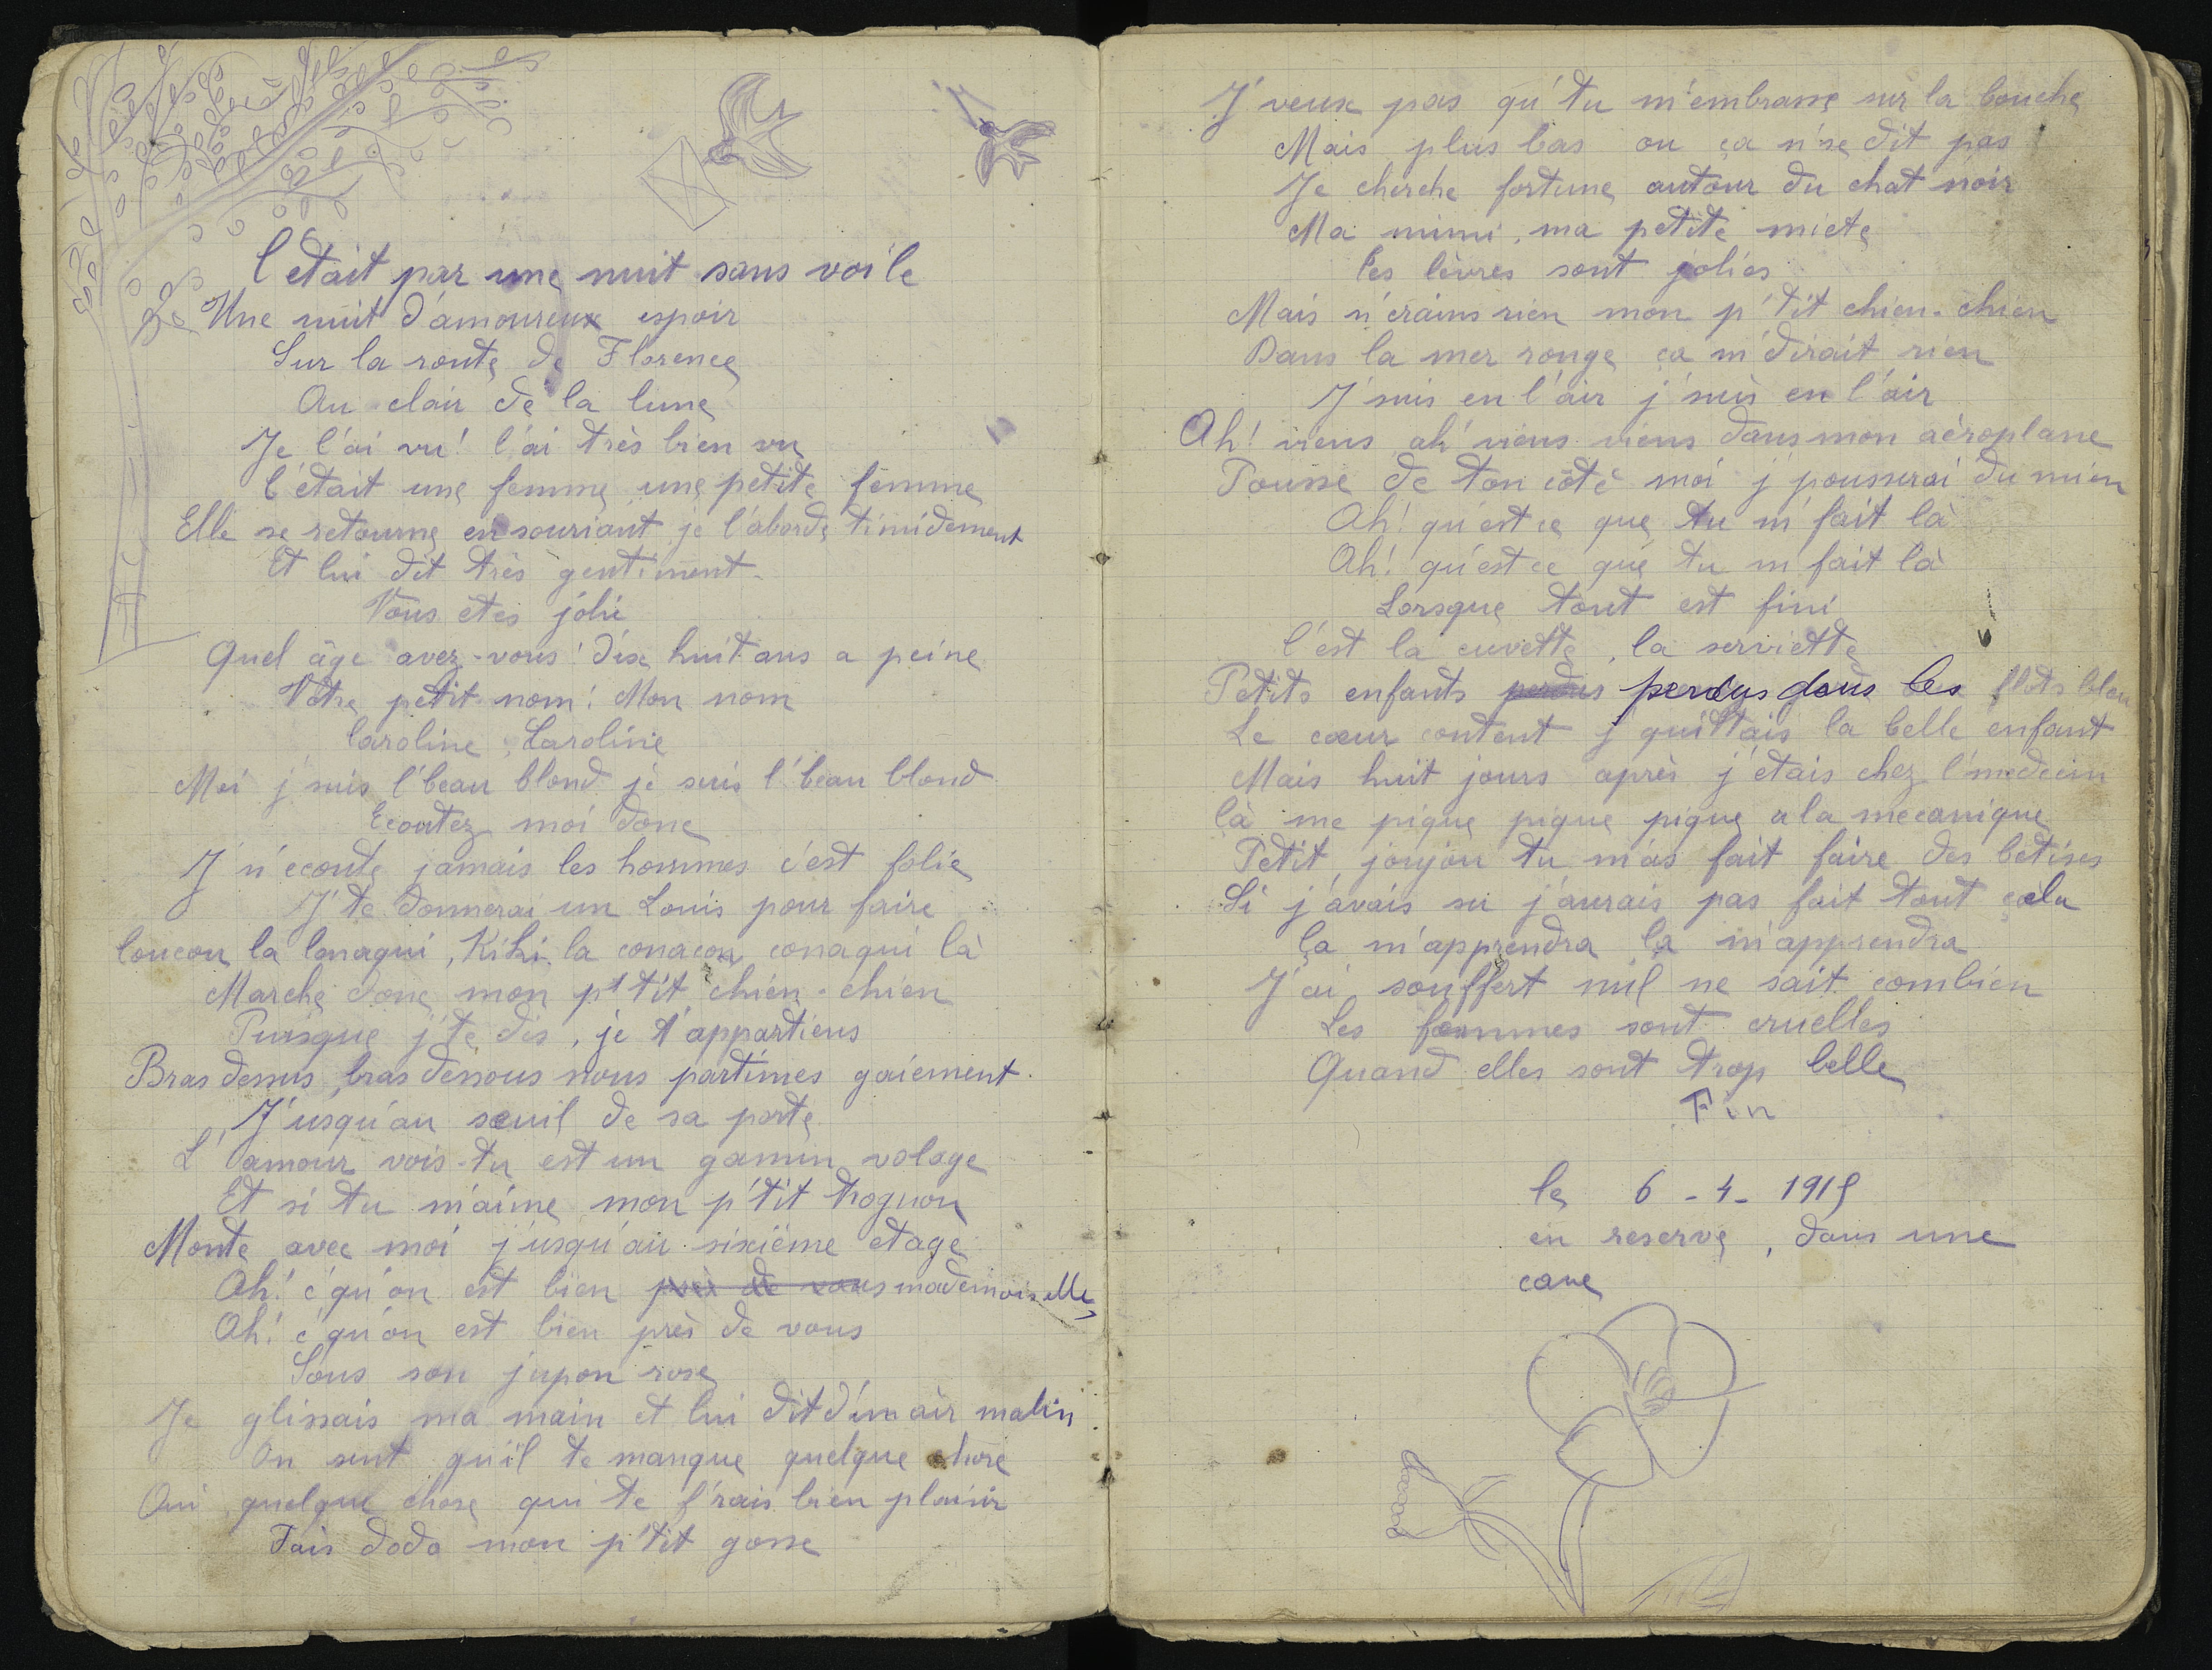 C'etait par une nuit sans voile
Une nuit d'amoureux espoir
Sur la route de Florence
Au clair de la lune
Je l'ai vu! l'ai très bien vu
C'était une femme une petite femme
Elle se retourne en souriant je l'aborde timidement
Et lui dit très gentiment.
Vous êtes jolie
Quel âge avez-vous! dix huit ans a peine
Votre petit nom! Mon nom
Caroline, Caroline
Moi j'suis l'beau blond je suis l'beau blond
Ecoutez moi donc
J'n'ecoute jamais les hommes c'est folie
J'te donnerai un Louis pour faire
Coucou la conaqui, Kiki la conacou conaqui là
Marche donc mon p'tit chien-chien
Puisque j'te dis, je t'appartiens
Bras dessus, bras dessous nous partîmes gaiement.
J'usqu'au seuil de sa porte
L'amour vois-tu est un gamin volage
Et si tu m'aime mon p'tit trognon
Monte avec moi j'usqu'au sixième etage
Ah! c'qu'on est bien près de vous mademoiselle,
Ah! c'qu'on est bien près de vous
Sous son jupon rose
Je glissais ma main et lui dit d'un air malin
On sent qu'il te manque quelque chose
Oui quelque chose qui te f'rais bien plaisir
Fais dodo mon p'tit gosse
J'veux pas qu'tu m'embrasse sur la bouche
Mais plus bas ou ça n'se dit pas
Je cherche fortune autour du chat noir
Ma mimi, ma petite miete
Tes lèvres sont jolies
Mais n'crains rien mon p'tit chien-chien
Dans la mer rouge ça m'dirait rien
J'suis en l'air j'suis en l'air
Ah! viens ah! viens viens dans mon aéroplane
Pousse de ton côté moi j'pousserai du mien
Ah! qu'est ce que tu m'fait là
Ah! qu'est ce que tu m'fait là
Lorsque tout est fini
C'est la cuvette, la serviette
Petits enfants perdus perdus dans les flots bleu
Le cœur content j'quittais la belle enfant
Mais huit jours après j'étais chez l'medecin
Cà me pique pique pique a la mecanique
Petit joujou tu m'as fait faire des betises
Si j'avais su j'aurais pas fait tout cela
Ça m'apprendra ça m'apprendra
J'ai souffert nul ne sait combien
Les femmes sont cruelles
Quand elles sont trop belle
Fin
le 6-4-1915
en reserve, dans une
cave